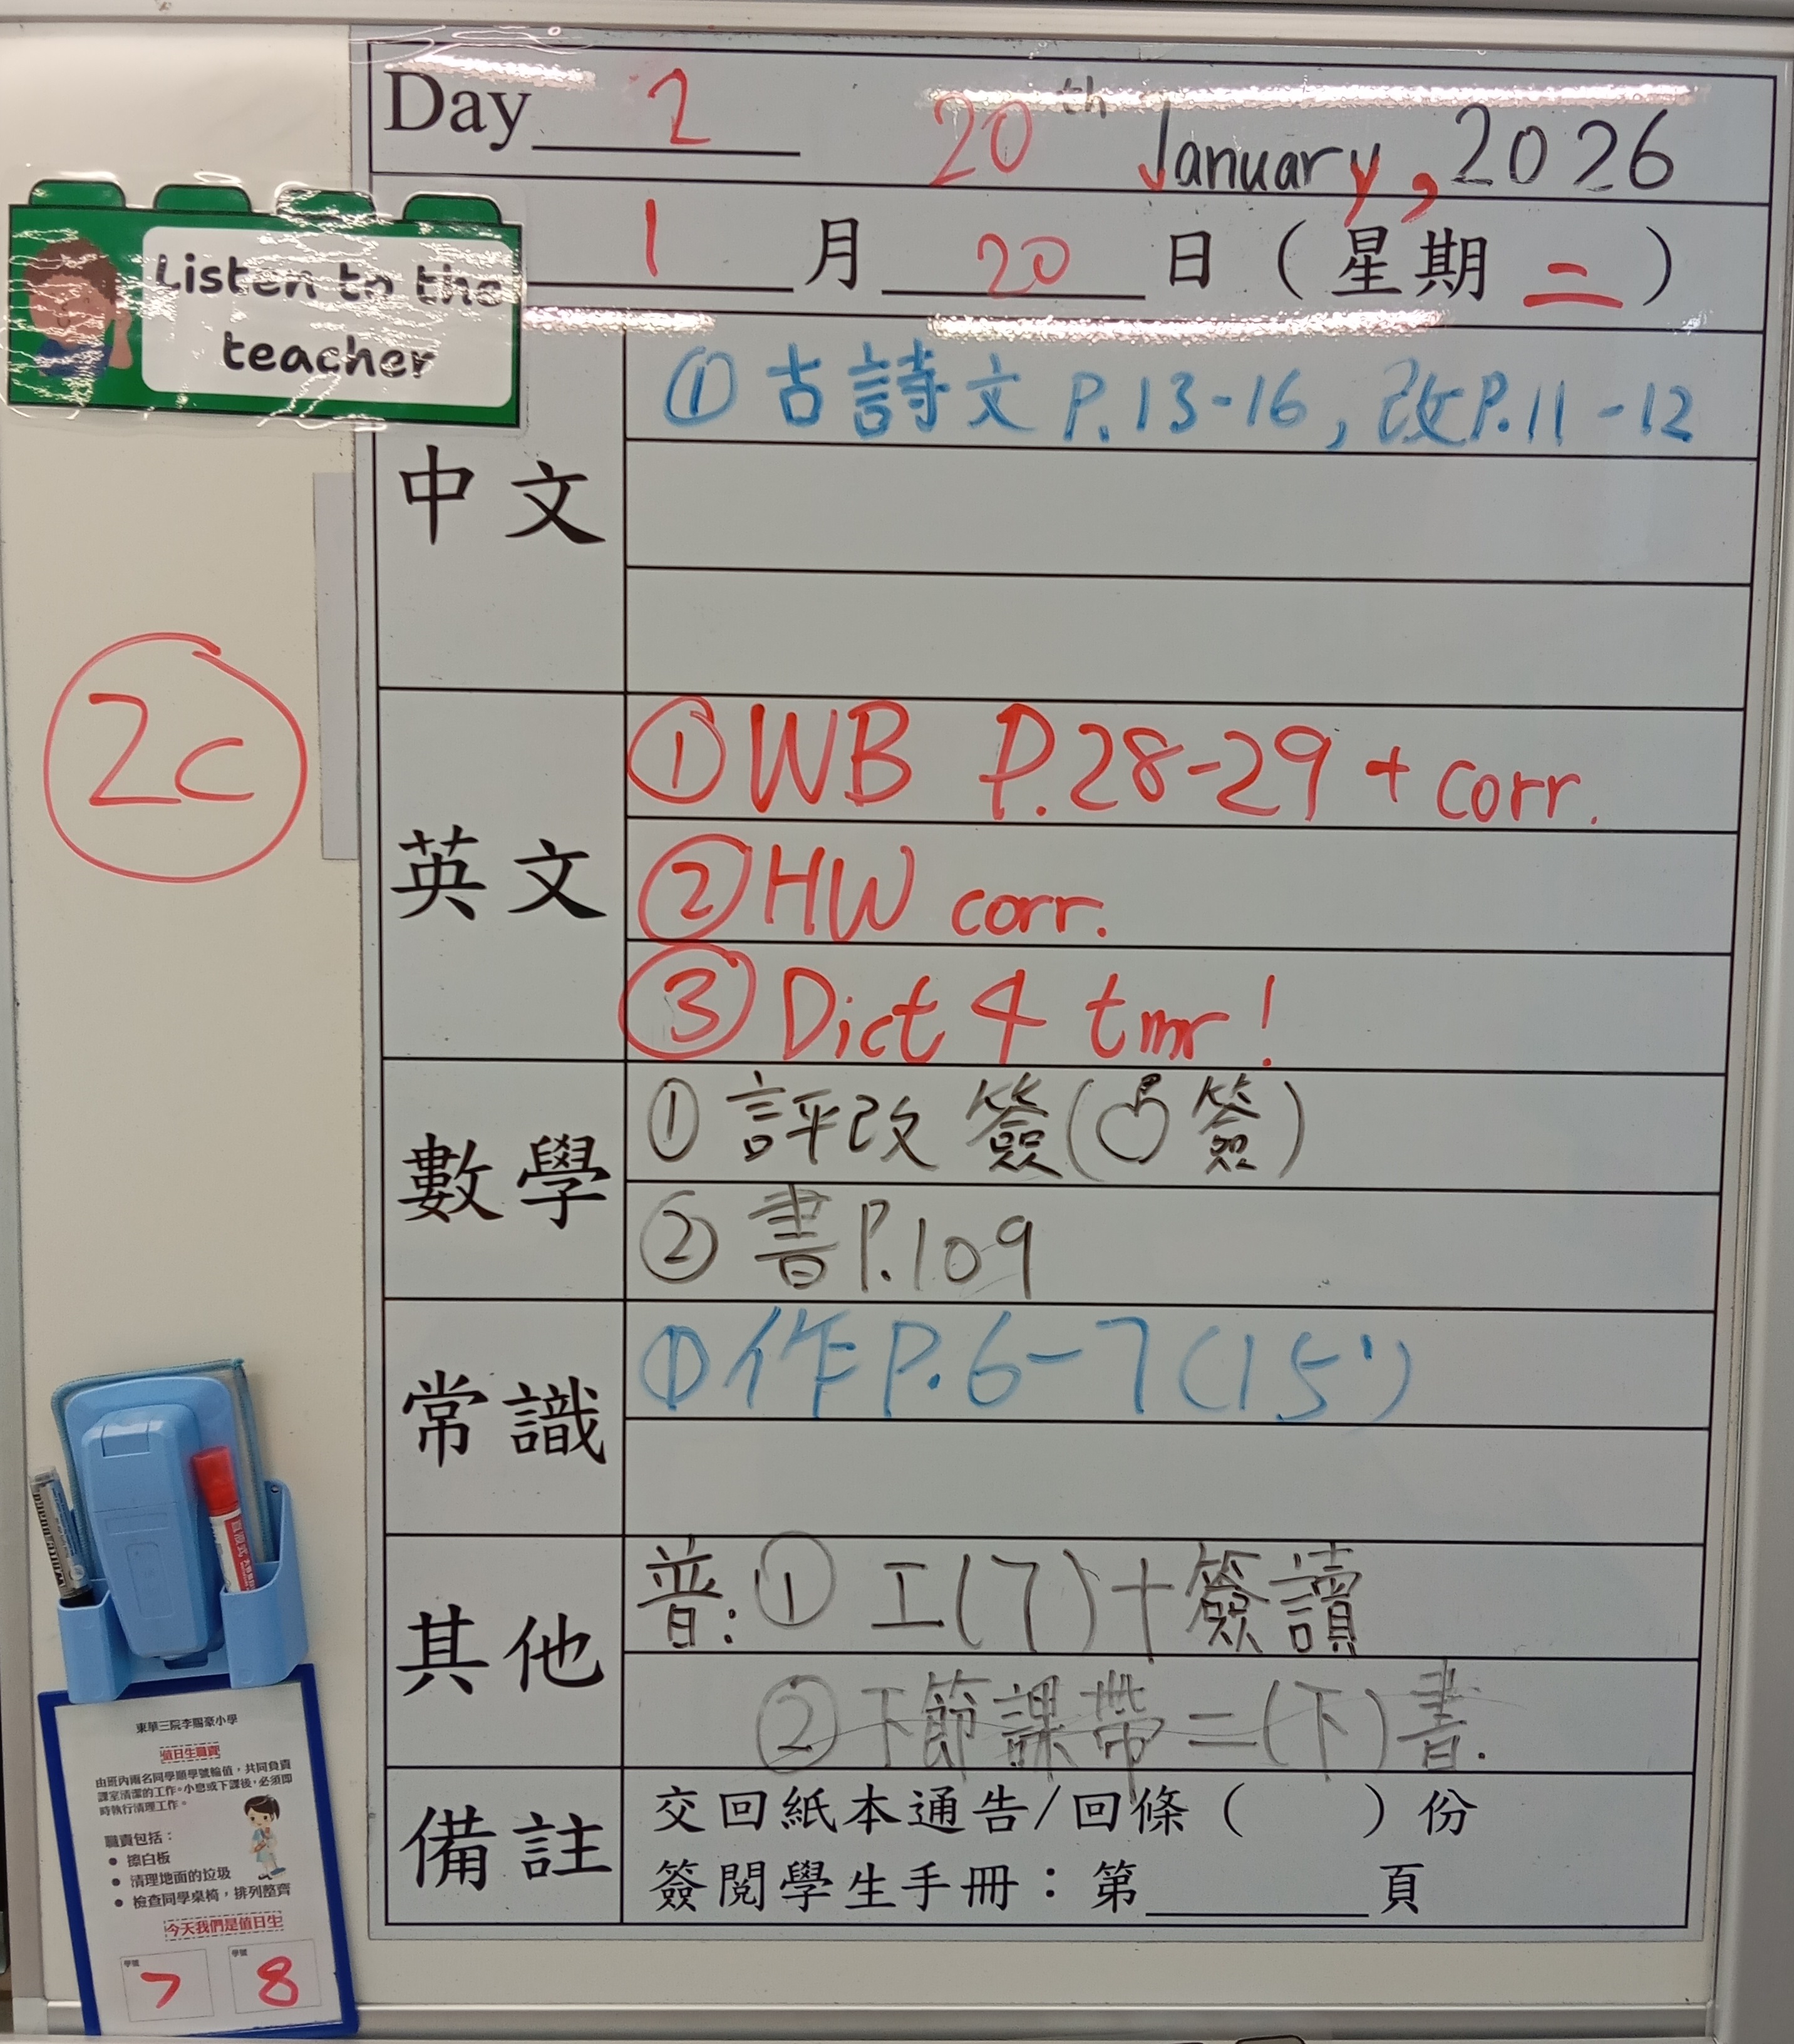 Day 2 20th January, 2026
1 月 20 日 (星期 二)
Listen to the
teacher
中文
① 古詩文 P.13-16, 改P.11-12
2C
英文
① WB P.28-29 + corr.
② HW corr.
③ Dict 4 tmr!
數學
① 評改 簽( 簽)
② 書P.109
常識
① 作P.6-7(15')
其他
普:① 工(7)+簽讀
②下節課帶二(下)書.
備註
交回紙本通告/回條( )份
簽閱學生手冊:第 頁
東華三院李賜豪小學
值日生職責
由班內兩名同學順學號輪值,共同負責
課室清潔的工作。小息或下課後,必須即
時執行清理工作。
職責包括:
• 擦白板
• 清理地面的垃圾
• 檢查同學桌椅,排列整齊
今天我們是值日生
學號 學號
7 8